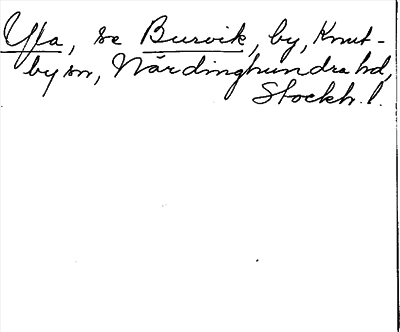 Yla, se Bursvik, by, Knut-
by sn, Närdinghundra hd,
Stockh. l.